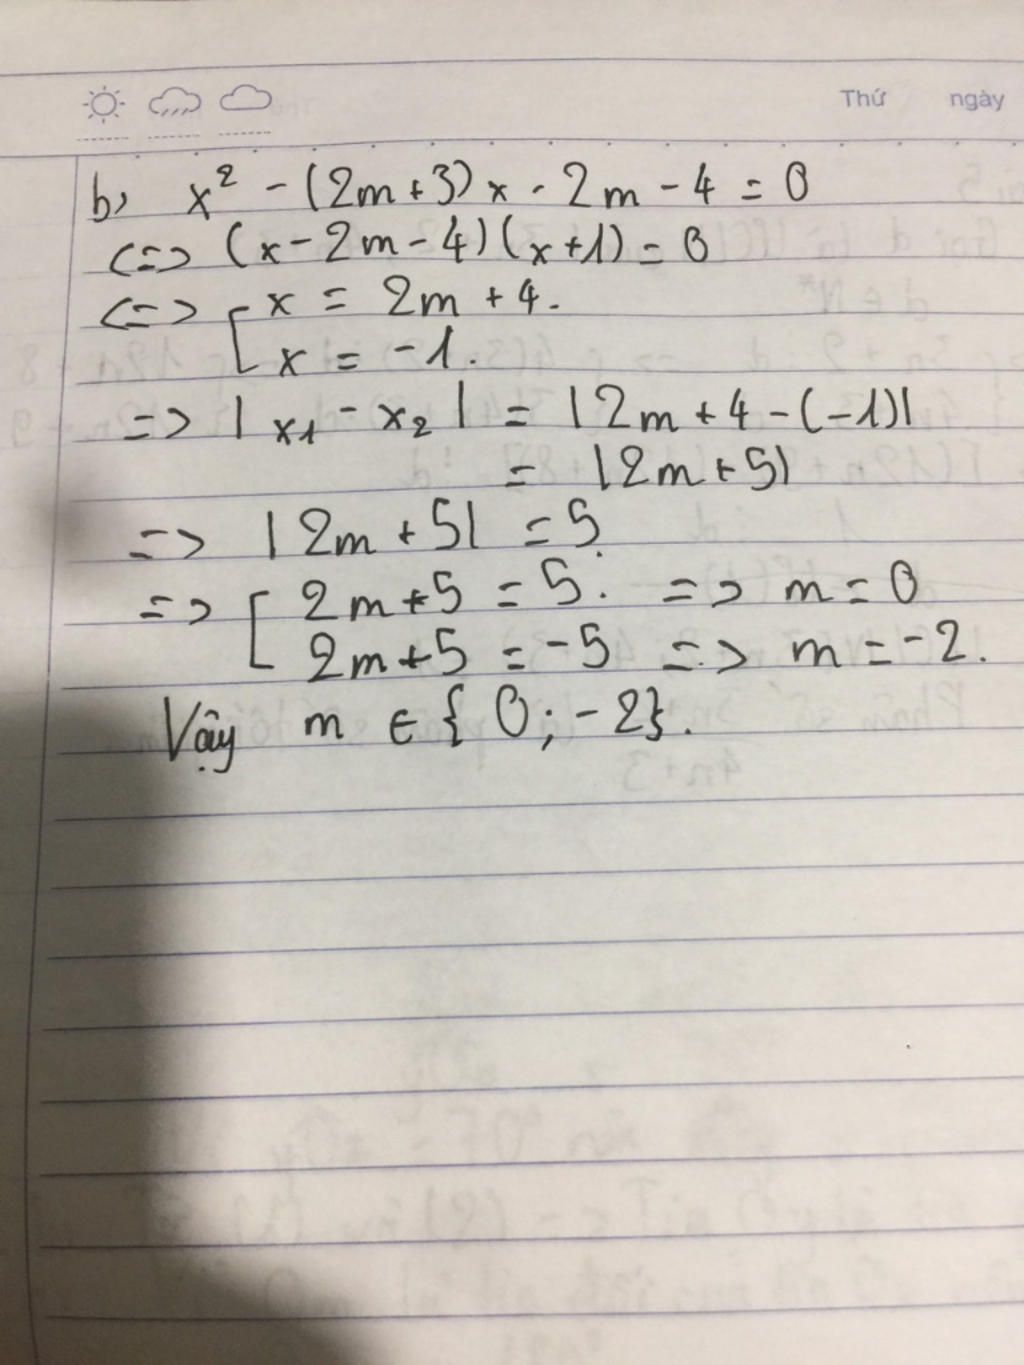 Thứ ngày
b, x² - (2m+3)x - 2m - 4 = 0
<=> (x - 2m - 4)(x+1) = 0
<=> [ x = 2m + 4.
x = -1.
=> | x₁ - x₂ | = |2m + 4 - (-1)|
= |2m + 5|
=> |2m + 5| = 5.
=> [ 2m + 5 = 5. => m = 0
2m + 5 = -5 => m = -2.
Vậy m ∈ { 0; -2}.